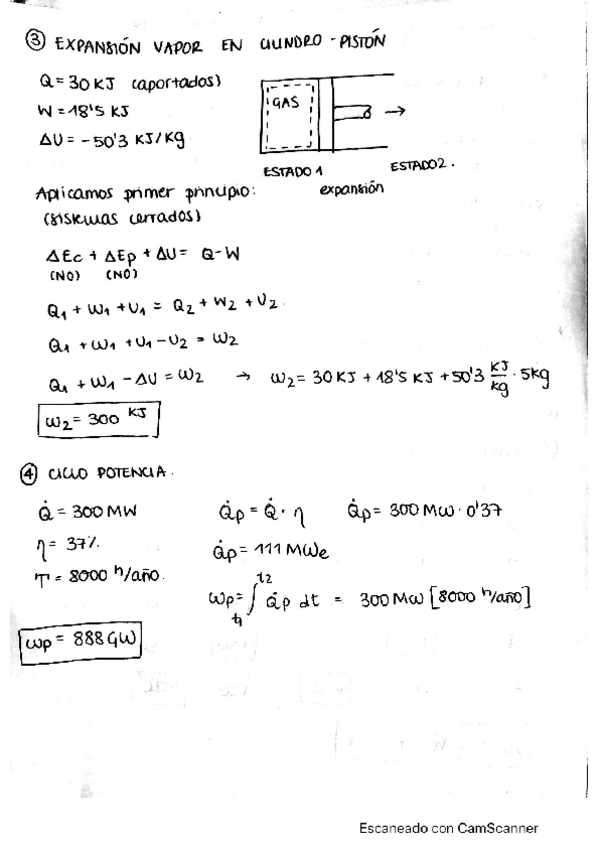 ③ EXPANSIÓN VAPOR EN CILINDRO-PISTÓN
Q = 30 KJ (aportados)
W = 18'5 KJ
ΔU = -50'3 KJ/Kg
GAS
ESTADO 1
ESTADO 2.
expansión
Aplicamos primer principio:
(sistemas cerrados)
ΔEc + ΔEp + ΔU = Q-W
(NO) (NO)
Q1 + W1 + U1 = Q2 + W2 + U2
Q1 + W1 + U1 - U2 = W2
Q1 + W1 - ΔU = W2 → W2 = 30 KJ + 18'5 KJ + 50'3 KJ/kg · 5kg
W2 = 300 KJ
④ CICLO POTENCIA.
Q̇ = 300 MW Q̇p = Q̇ · η Q̇p = 300 MW · 0'37
η = 37%. Q̇p = 111 MWe
T = 8000 h/año. Wp = ∫t1t2 Q̇p dt = 300 MW [8000 h/año]
Wp = 888 GW
Escaneado con CamScanner